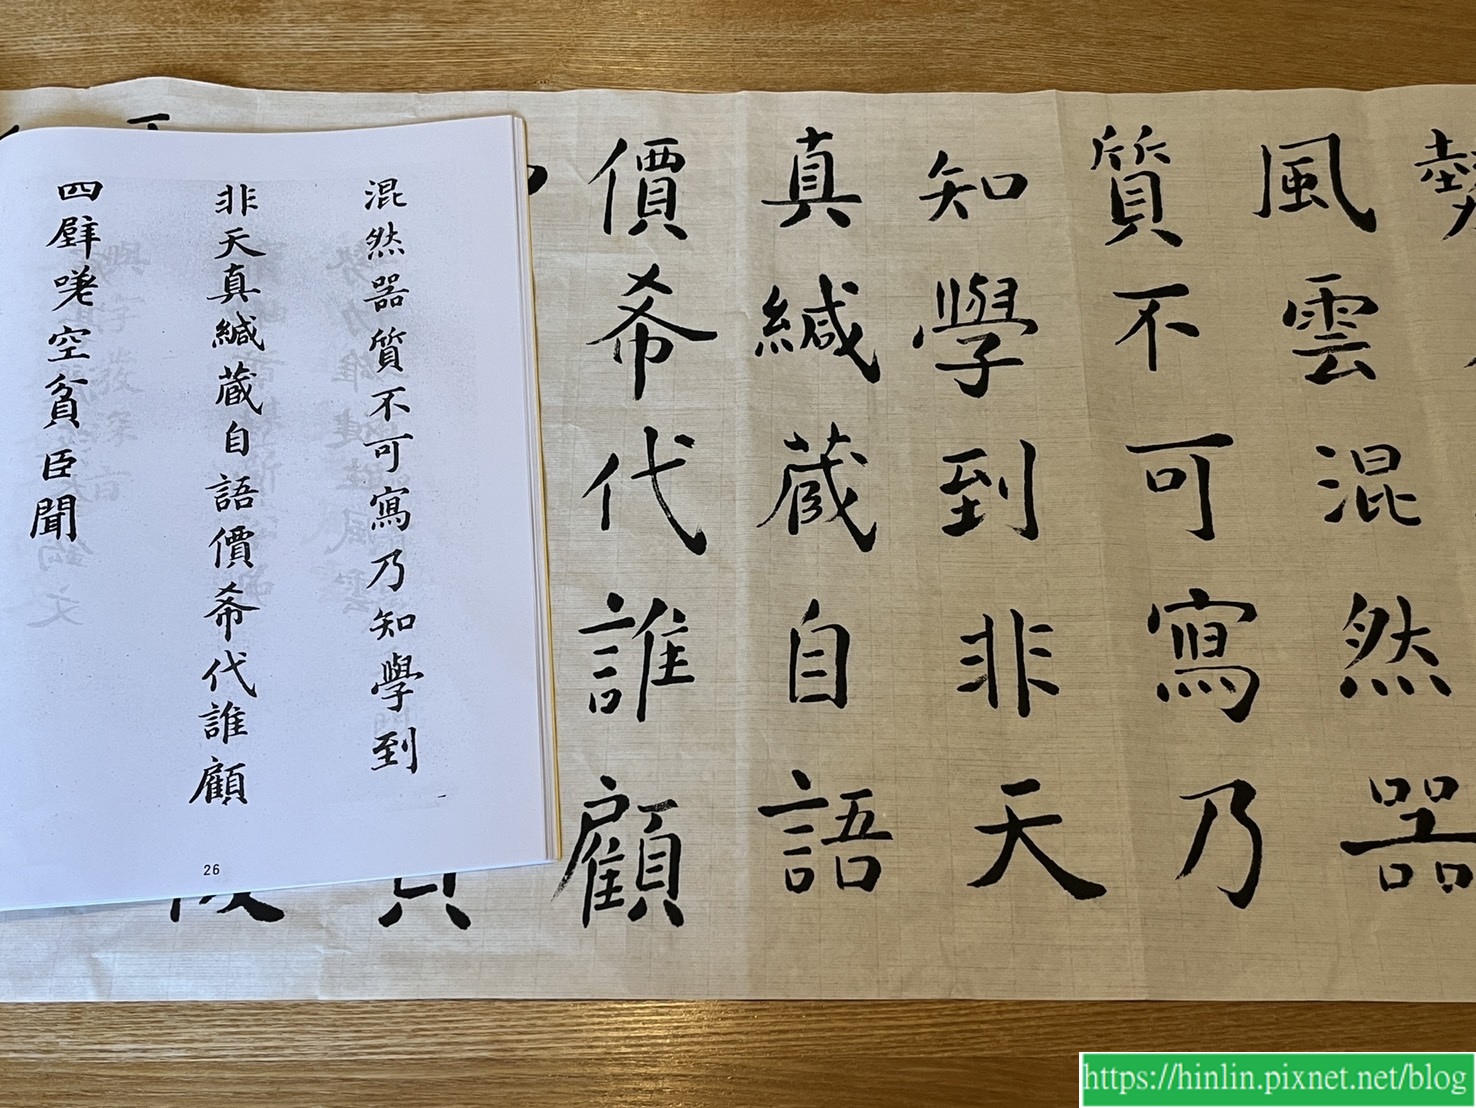 混然器質不可寫乃知學到
非天真緘蔵自語價希代誰顧
四壁嘆空貧臣聞
26
風雲混然器
質不可寫乃
知學到非天
真緘蔵自語
價希代誰顧
https://hinlin.pixnet.net/blog